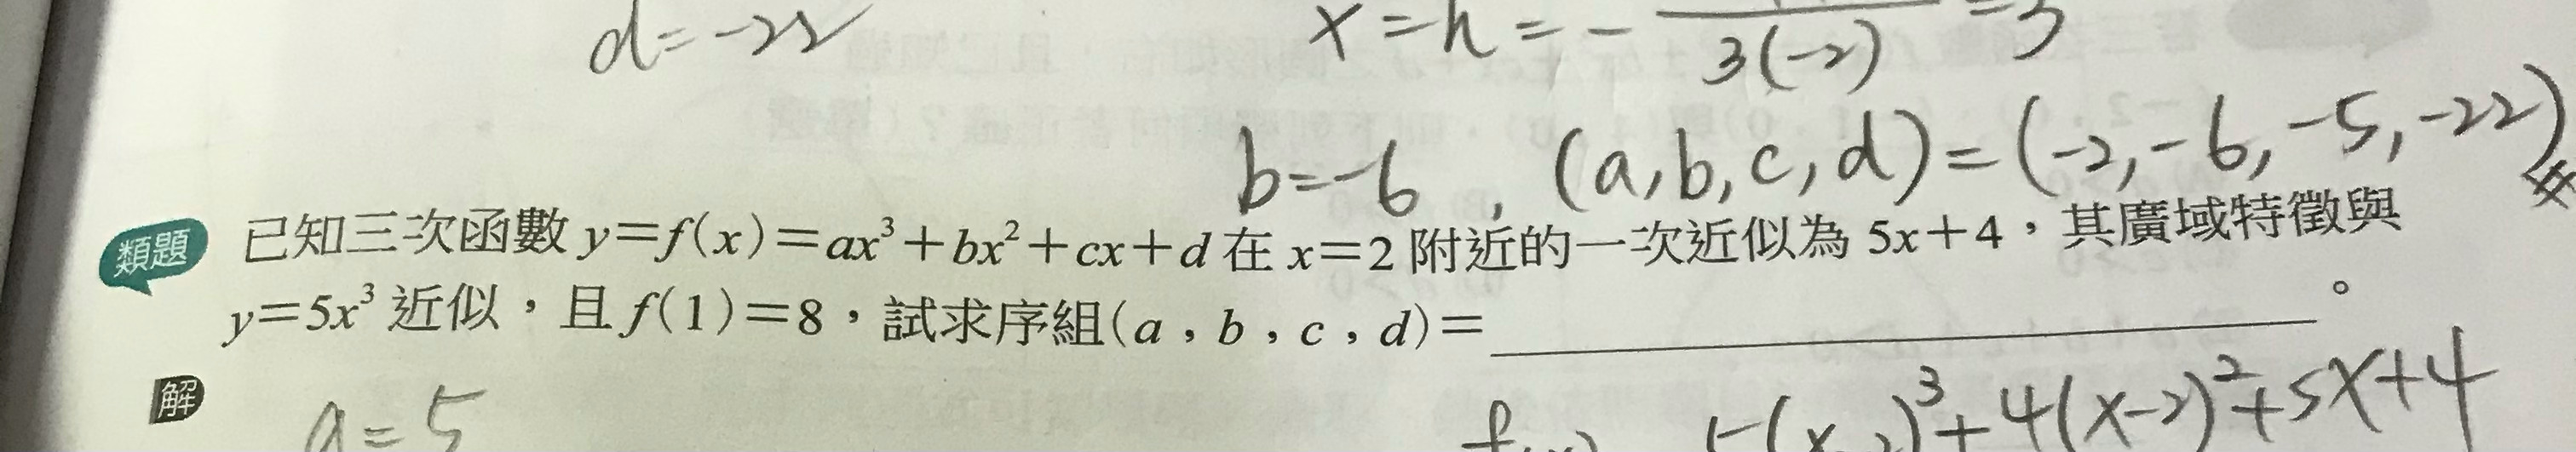 d=-22
x=h=-
3(-2)
=3
b=-6, (a,b,c,d)=(-2,-6,-5,-22)
類題 已知三次函數 y=f(x)=ax³+bx²+cx+d 在 x=2 附近的一次近似為 5x+4，其廣域特徵與
y=5x³ 近似，且 f(1)=8，試求序組(a，b，c，d)=＿＿＿＿＿＿。
解
a=5
(x-2)³+4(x-2)²+5x+4